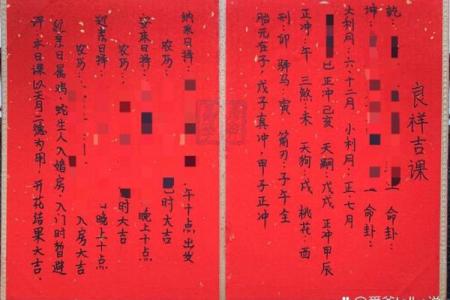 良祥吉课
乾： 命卦：
坤： 一命卦：
大利月：六十二月 小利月：正七月
巳正冲己亥 天嗣：戊戌 正冲甲辰
正冲：午 三煞：未 天狗：戌 桃花：酉
刑：卯 驿马：寅 箭刃：子午全
胎元在子，戊子真冲 甲子正冲
纳采日择： 午十点 出女
农历： 时大吉
安床日择： 晚上十点
农历： 时大吉
迎亲日择： 晚上十点
农历： 入房大吉
迎亲日属鸡，蛇生人入婚房，入门时暂避
评：本日课以三月二德为用，开花结果大吉。